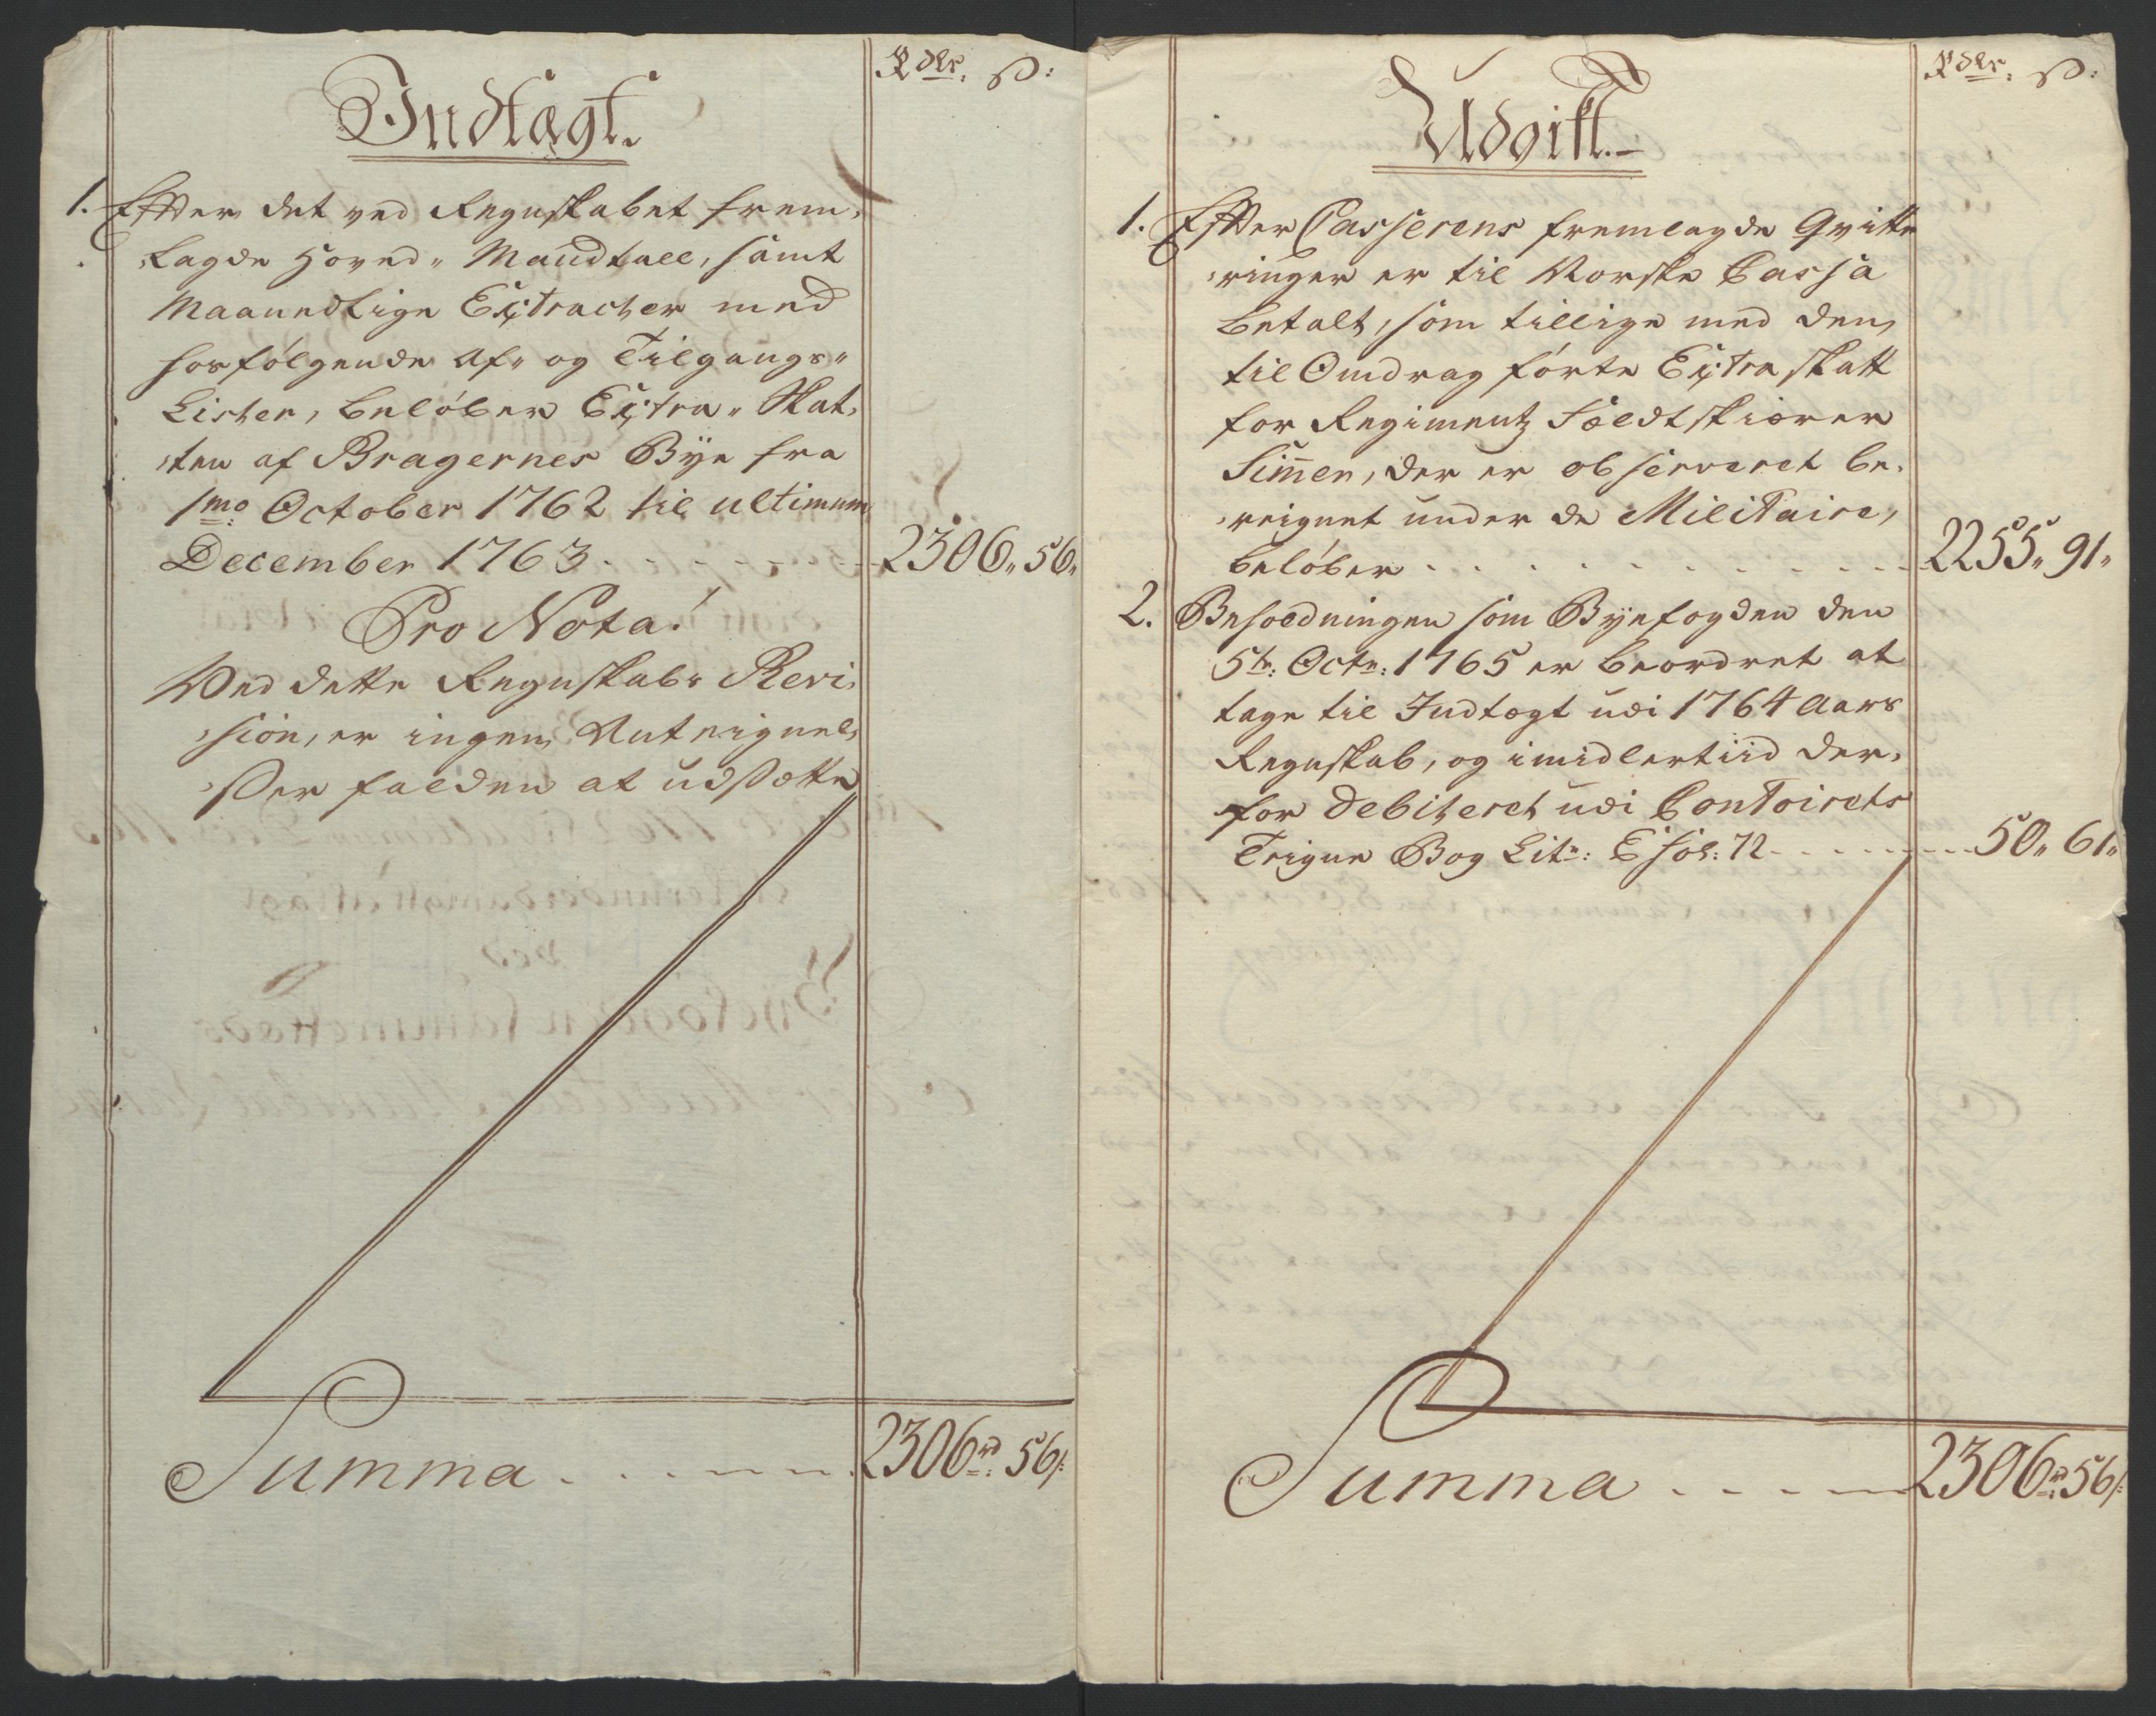 Rdlr. ß:
Indtægt.
1. Effter det ved Regnskabet frem¬
lagde Hoved- Mandtall, samt
Maanedlige Extracter med
hosfølgende Af- og Tilgangs-
Lister, beløber Extra- Skat¬
ten af Bragernes Bye fra
1mo October 1762 til ultimum
December 1763 2306" 56"
Pro Nota!
Ved dette Regnskabs Revi¬
sion, er ingen Anteignel¬
ser falden at udsætte
Summa 2306rd 56ß
Rdlr. ß:
Udgift.
1. Effter Casserens fremlagde Qvitte
ringer er til Norske Cassa
betalt, som tillige med den,
til Omdrag førte Extra skatt
for Regimentz Feldtskiærer
Simen, der er observeret be¬
reignet under de Militaire,
beløber 2255" 91"
2. Besoldningen som Byefogden den
5te: Octr: 1765 er beordret at
tage til Indtægt udi 1764 Aars
Regnskab, og imidlertiid der¬
for debiteret udi Contoirets
Teigne Bog Litr: E fol: 72 50" 61"
Summa 2306rd 56ß